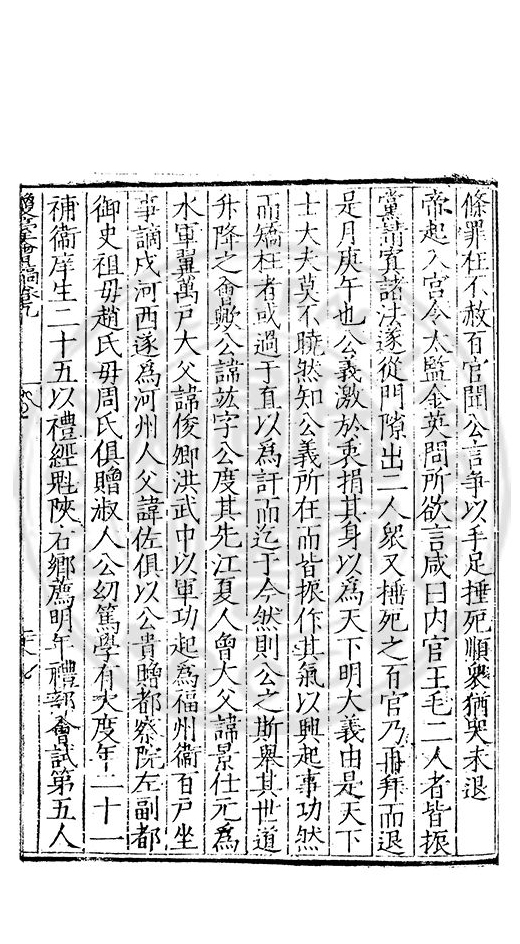 條罪枉不赦百官聞公言爭以手足捶死順衆猶哭未退
帝起入宮令太監金英問所欲言咸曰内官王毛二人者皆振
黨請寘諸法遂從門隙出二人衆又捶死之百官乃再拜而退
是月庚午也公義激於衷捐其身以爲天下明大義由是天下
士大夫莫不曉然知公義所在而皆振作其氣以興起事功然
而矯枉者或過于直以爲訐而迄于今然則公之斯舉其世道
升降之會歟公諱竑字公度其先江夏人曾大父諱景仕元爲
水軍翼萬戸大父諱俊卿洪武中以軍功起爲福州衞百戸坐
事謫戍河西遂爲河州人父諱佐俱以公貴贈都察院左副都
御史祖毋趙氏毋周氏俱贈淑人公幼篤學有大度年二十一
補衞庠生二十五以禮經魁陝右鄉薦明年禮部會試第五人